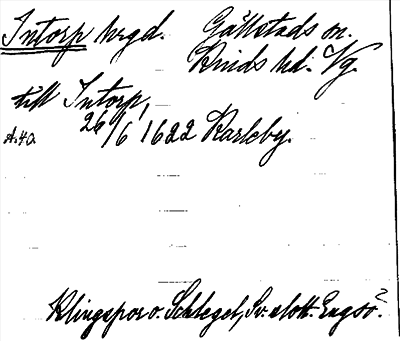 Intorp hrgd. Gällstads sn.
Kinds hd. Vg.
till Intorp,
A.40. 26/6 1622 Karleby.
Klingspor o. Schlegel, Sv. slott. Engsö?